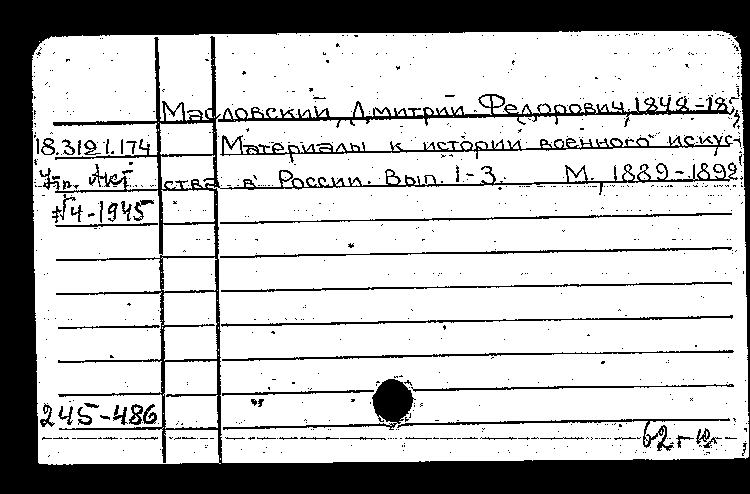 Масловский, Дмитрий Федорович, 1848-18
18.3191.174 Материалы к истории военного искус-
ства в России. Вып. 1-3. М., 1889-1892
4-1945
245-486
62